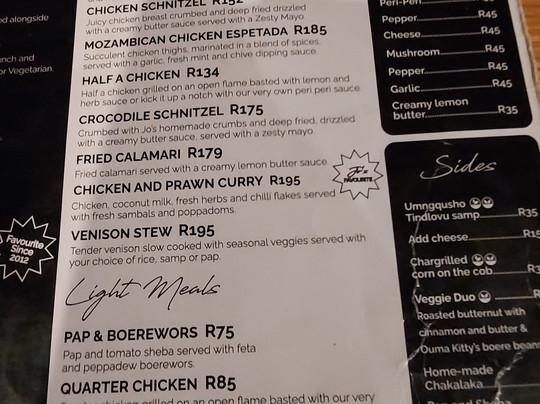 ed alongside
nch and
or Vegetarian.
Favourite
Since
2012
CHICKEN SCHNITZEL R152
Juicy chicken breast crumbed and deep fried drizzled
with a creamy butter sauce served with a Zesty Mayo
MOZAMBICAN CHICKEN ESPETADA R185
Succulent chicken thighs, marinated in a blend of spices,
served with a garlic, fresh mint and chive dipping sauce.
HALF A CHICKEN R134
Half a chicken grilled on an open flame basted with lemon and
herb sauce or kick it up a notch with our very own peri peri sauce.
CROCODILE SCHNITZEL R175
Crumbed with Jo's homemade crumbs and deep fried, drizzled
with a creamy butter sauce, served with a zesty mayo.
FRIED CALAMARI R179
Fried calamari served with a creamy lemon butter sauce.
CHICKEN AND PRAWN CURRY R195
Chicken, coconut milk, fresh herbs and chilli flakes served
with fresh sambals and poppadoms.
Jo's
FAVOURITE
VENISON STEW R195
Tender venison slow cooked with seasonal veggies served with
your choice of rice, samp or pap.
Light Meals
PAP & BOEREWORS R75
Pap and tomato sheba served with feta
and peppadew boerewors.
QUARTER CHICKEN R85
chicken grilled on an open flame basted with our very
Peri-Peri
Pepper R45
Cheese R45
Mushroom R45
Pepper R45
Garlic R45
Creamy lemon
butter R35
Sides
Umngqusho
Tindlovu samp R35
Add cheese R15
Chargrilled
corn on the cob R3
Veggie Duo R
Roasted butternut with
cinnamon and butter &
Ouma Kitty's boere bean
Home-made
Chakalaka
Pap and Sheba